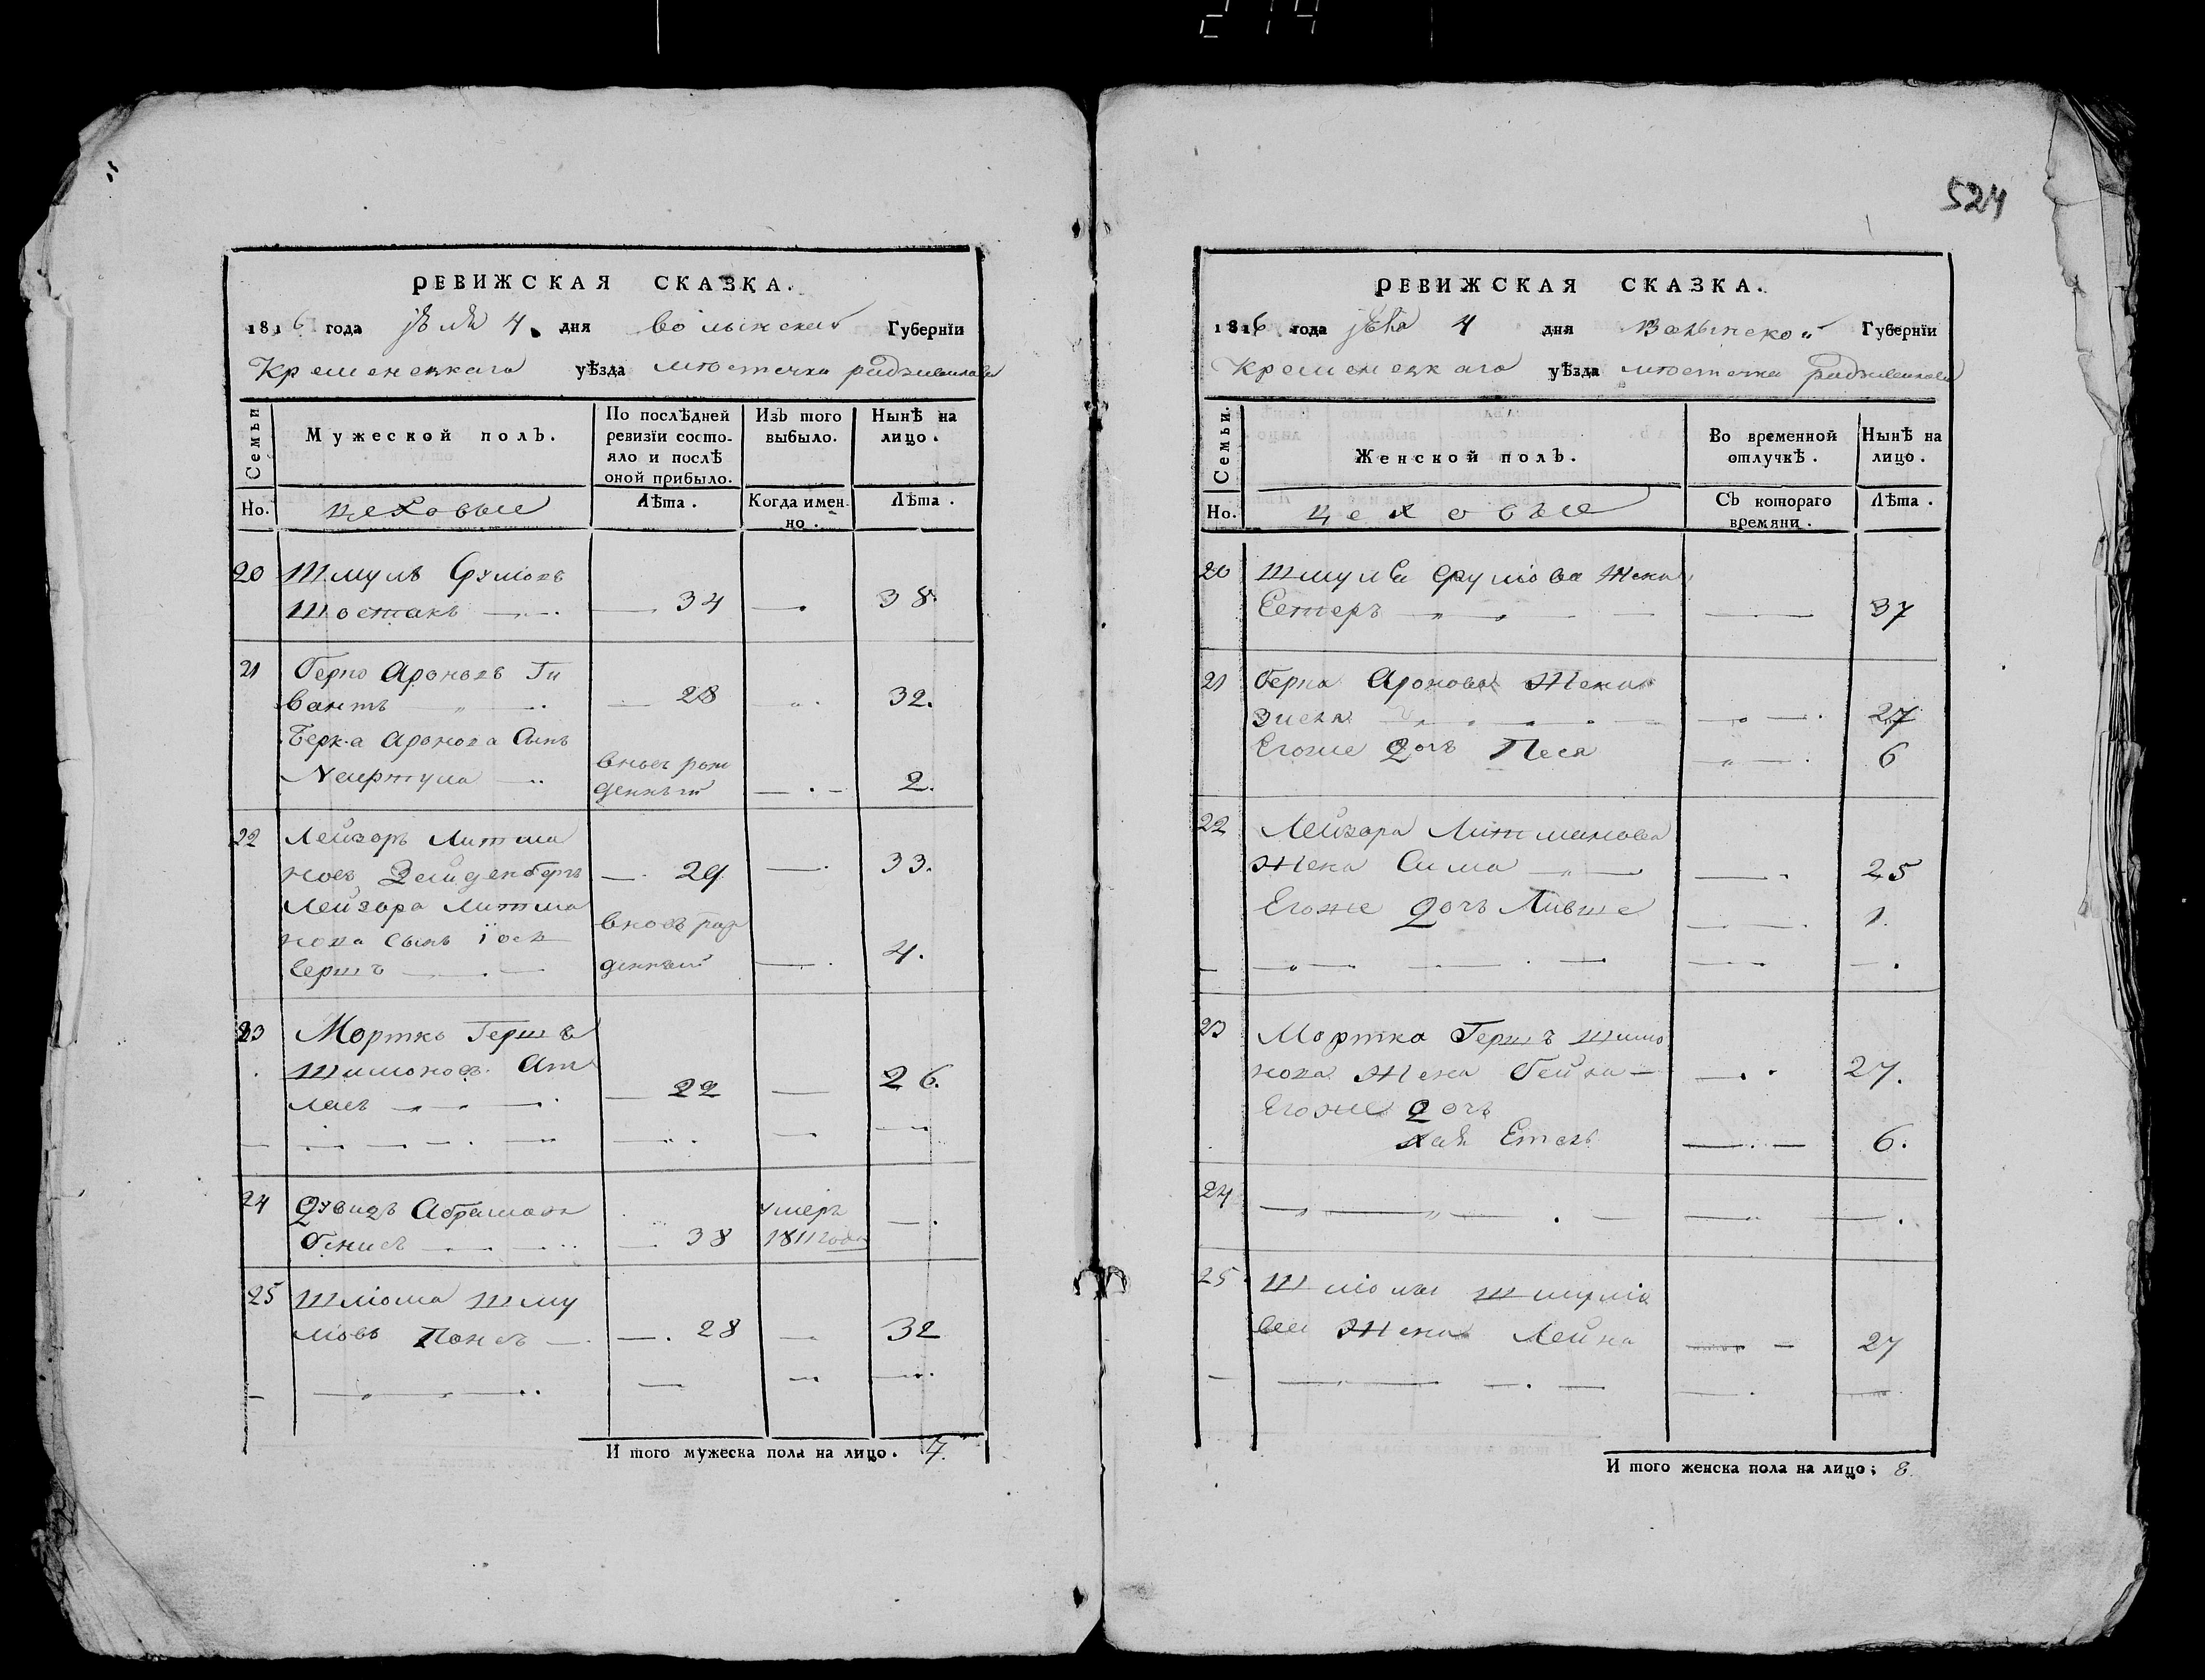 524
РЕВИЖСКАЯ СКАЗКА.
1816 года 4 дня Волынской Губернїи
Кременецкаго уѣзда мѣстечка радзивилова
Семьи
Мужеской полъ.
По послѣдней ревизїи состо-
яло и послѣ
оной прибыло.
Изъ того
выбыло.
Нынѣ на
лицо.
Но.
цеховые
Лѣта.
Когда имен-
но.
Лѣта.
20 Шмуль
Шостакъ — 34 — 38.
21 Берко Ароновъ Ги
вантъ — 28 32.
Берка Аронова Сынъ
вновь рож
денный — 2.
22 Лейзоръ Литма
новъ Зейденбергъ — 29 — 33.
Лейзора Литма
нова сынъ Їось вновь рож
Герша — денный — 4.
23 Мортко Гершъ
Шимоновъ Ат
ласъ — 22 — 26.
24 Дувидъ Абрамовъ умеръ
38 1811 года —.
25 Шлиома Шму
ловъ — 28 — 32
И того мужеска пола на лицо. 7.
РЕВИЖСКАЯ СКАЗКА.
1816 года 4 дня Волынской Губернїи
Кременецкаго уѣзда мѣстечка радзивилова
Семьи.
Женской полъ.
Во временной
отлучкѣ.
Нынѣ на
лицо.
Но.
цеховые
Съ котораго
времяни.
Лѣта.
20 Шмуля Фрумова Жена
Естеръ — 37
21 Берка Аронова Жена
— 27
Егоже Дочь Песя — 6
22 Лейзора Литманова
Жена Сима — 25
Егоже Дочь Ливше — 1.
23 Мортка Гершъ Шимо
нова Жена Бейла — 27.
Егоже Дочь
Хая Етель — 6.
24 —
25 Шлиомы Шмулио
вой Жена Лейка — 27
И того женска пола на лицо; 8.